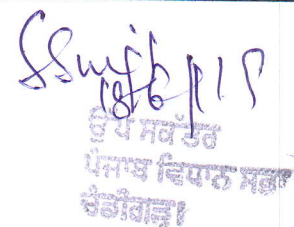 18/6/15
ਉਪ ਸਕੱਤਰ
ਪੰਜਾਬ ਵਿਧਾਨ ਸਭਾ
ਚੰਡੀਗੜ੍ਹ।